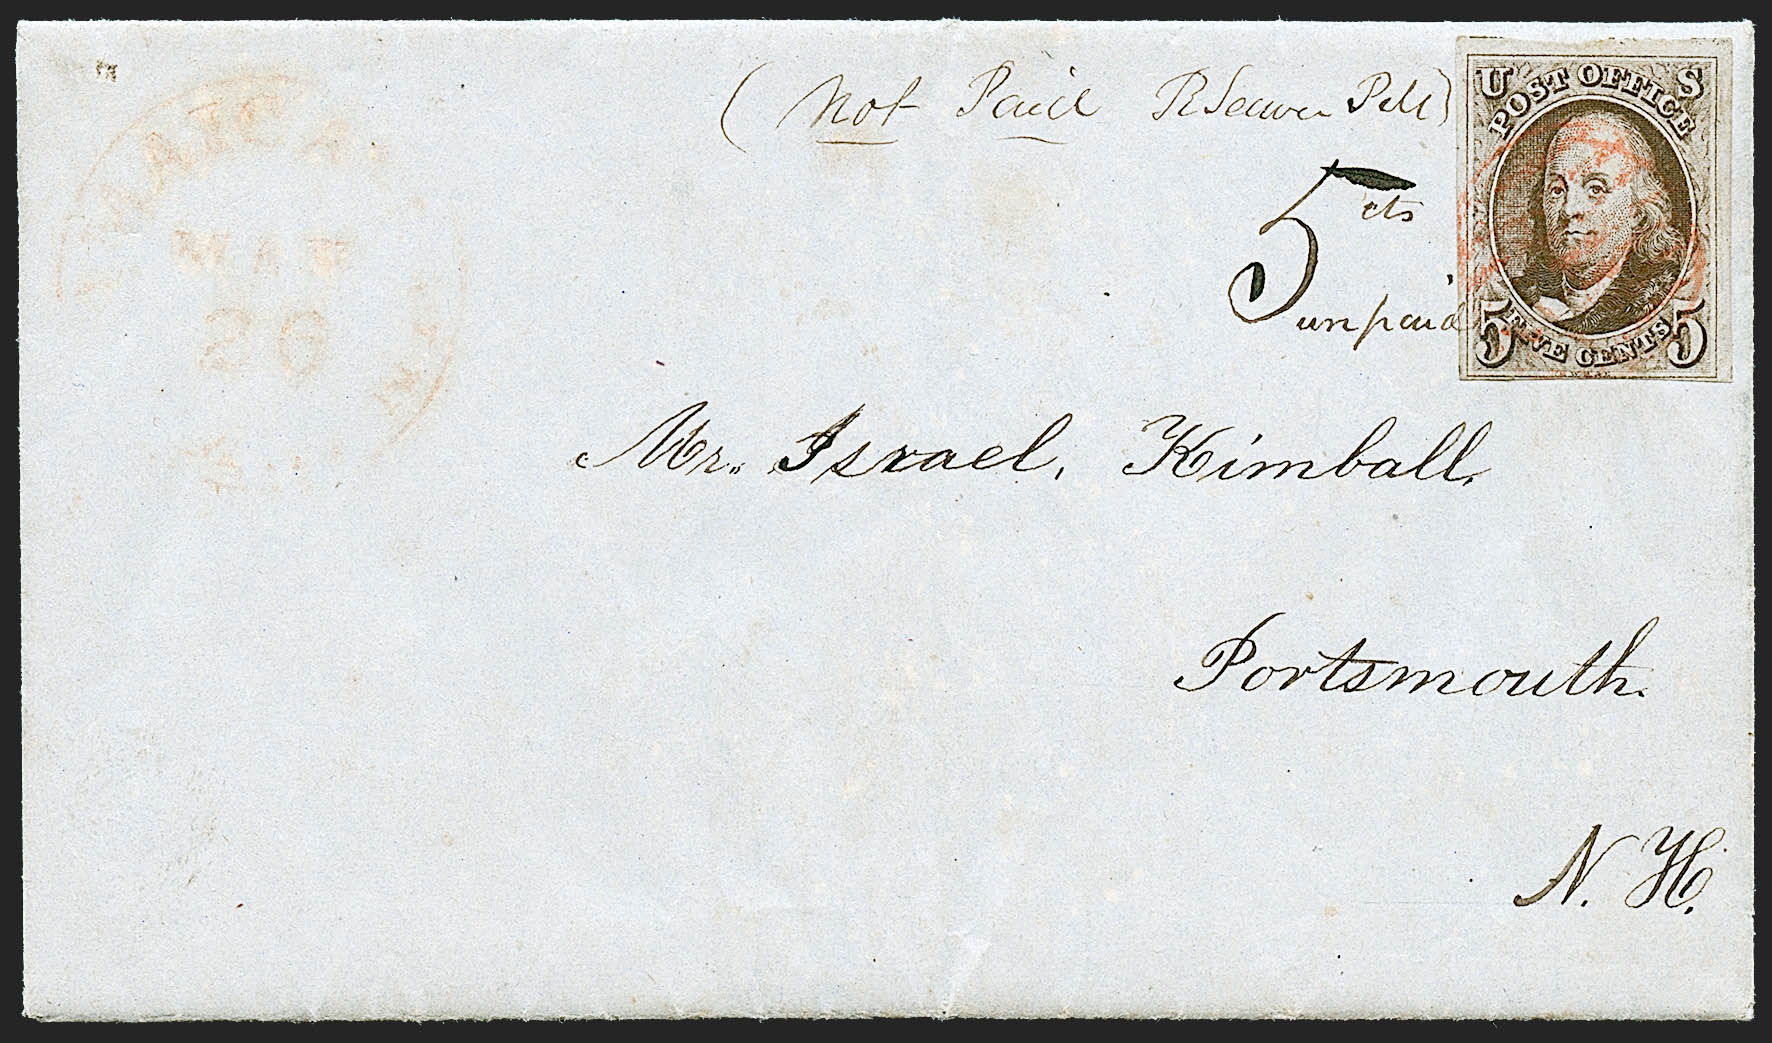 (Not Paid
5 cts
unpaid
U S
POST OFFICE
5 FIVE CENTS 5
Mr. Israel, Kimball,
Portsmouth.
N. H.